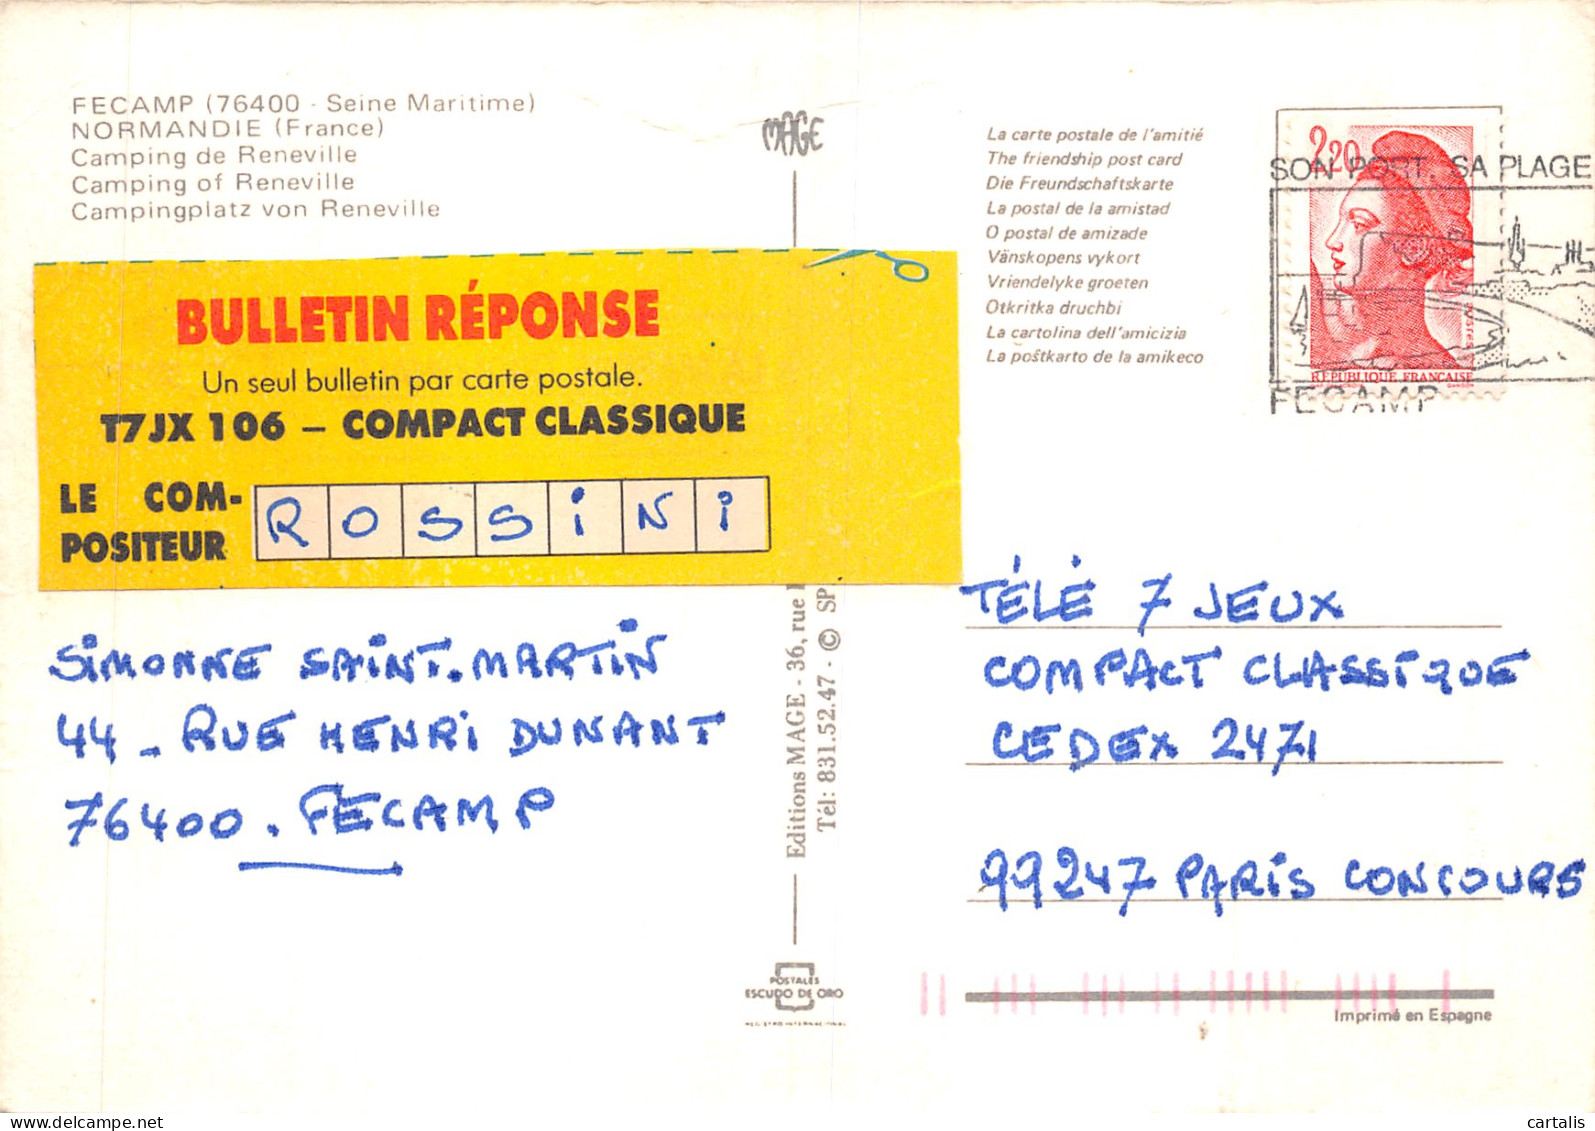 FECAMP (76400 - Seine Maritime)
NORMANDIE (France)
Camping de Reneville
Camping of Reneville
Campingplatz von Reneville
MAGE
La carte postale de l'amitié
The friendship post card
Die Freundschaftskarte
La postal de la amistad
O postal de amizade
Vänskopens vykort
Vriendelyke groeten
Otkritka druchbi
La cartolina dell'amicizia
La poŝtkarto de la amikeco
2,20
SON PORT, SA PLAGE
RÉPUBLIQUE FRANÇAISE
FECAMP
BULLETIN RÉPONSE
Un seul bulletin par carte postale.
T7JX 106 – COMPACT CLASSIQUE
LE COM-
POSITEUR
ROSSiNi
SiMONNE SAiNT.MARTiN
44 - RUE HENRi DUNANT
76400. FECAMP
Editions MAGE - 36, rue
Tél: 831.52.47 - © SP
TÉLÉ 7 JEUX
COMPACT CLASSiQUE
CEDEX 2471
99247 PARiS CONCOURS
POSTALES
ESCUDO DE ORO
REGISTRO INTERNACIONAL
Imprimé en Espagne
cartalis
delcampe.net